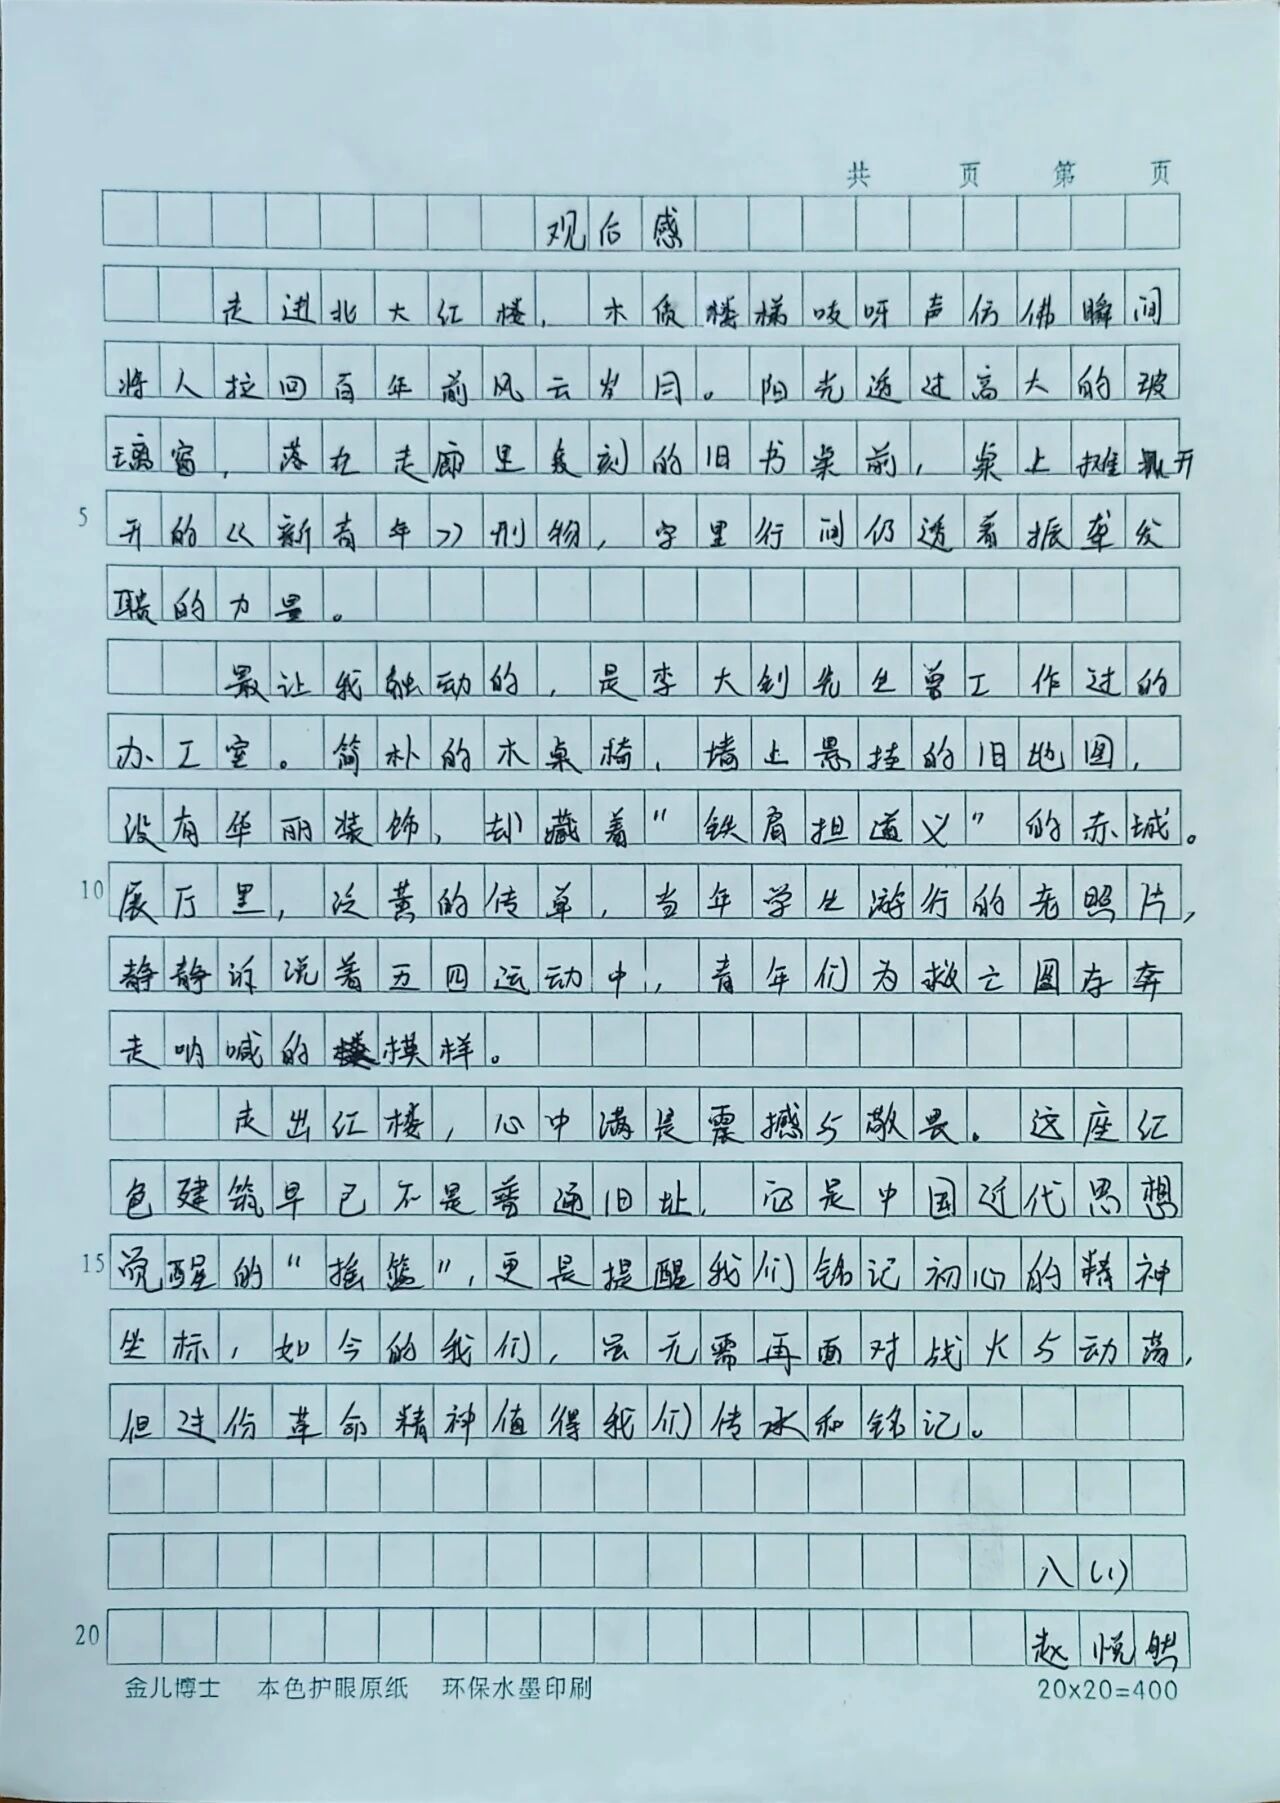 共 页 第 页
观后感
走进北大红楼，木质楼梯吱呀声仿佛瞬间
将人拉回百年前风云岁月。阳光透过高大的玻
璃窗，落在走廊里复刻的旧书桌前，桌上摊开
5 开的《新青年》刊物，字里行间仍透着振聋发
聩的力量。
最让我触动的，是李大钊先生曾工作过的
办工室。简朴的木桌椅，墙上悬挂的旧地图，
没有华丽装饰，却藏着“铁肩担道义”的赤城。
10 展厅里，泛黄的传单，当年学生游行的老照片，
静静诉说着五四运动中，青年们为救亡图存奔
走呐喊的模样。
走出红楼，心中满是震撼与敬畏。这座红
色建筑早已不是普通旧址，它是中国近代思想
15 觉醒的“摇篮”，更是提醒我们铭记初心的精神
坐标，如今的我们，虽无需再面对战火与动荡，
但这份革命精神值得我们传承和铭记。
八(1)
20 赵悦然
金儿博士 本色护眼原纸 环保水墨印刷 20×20=400